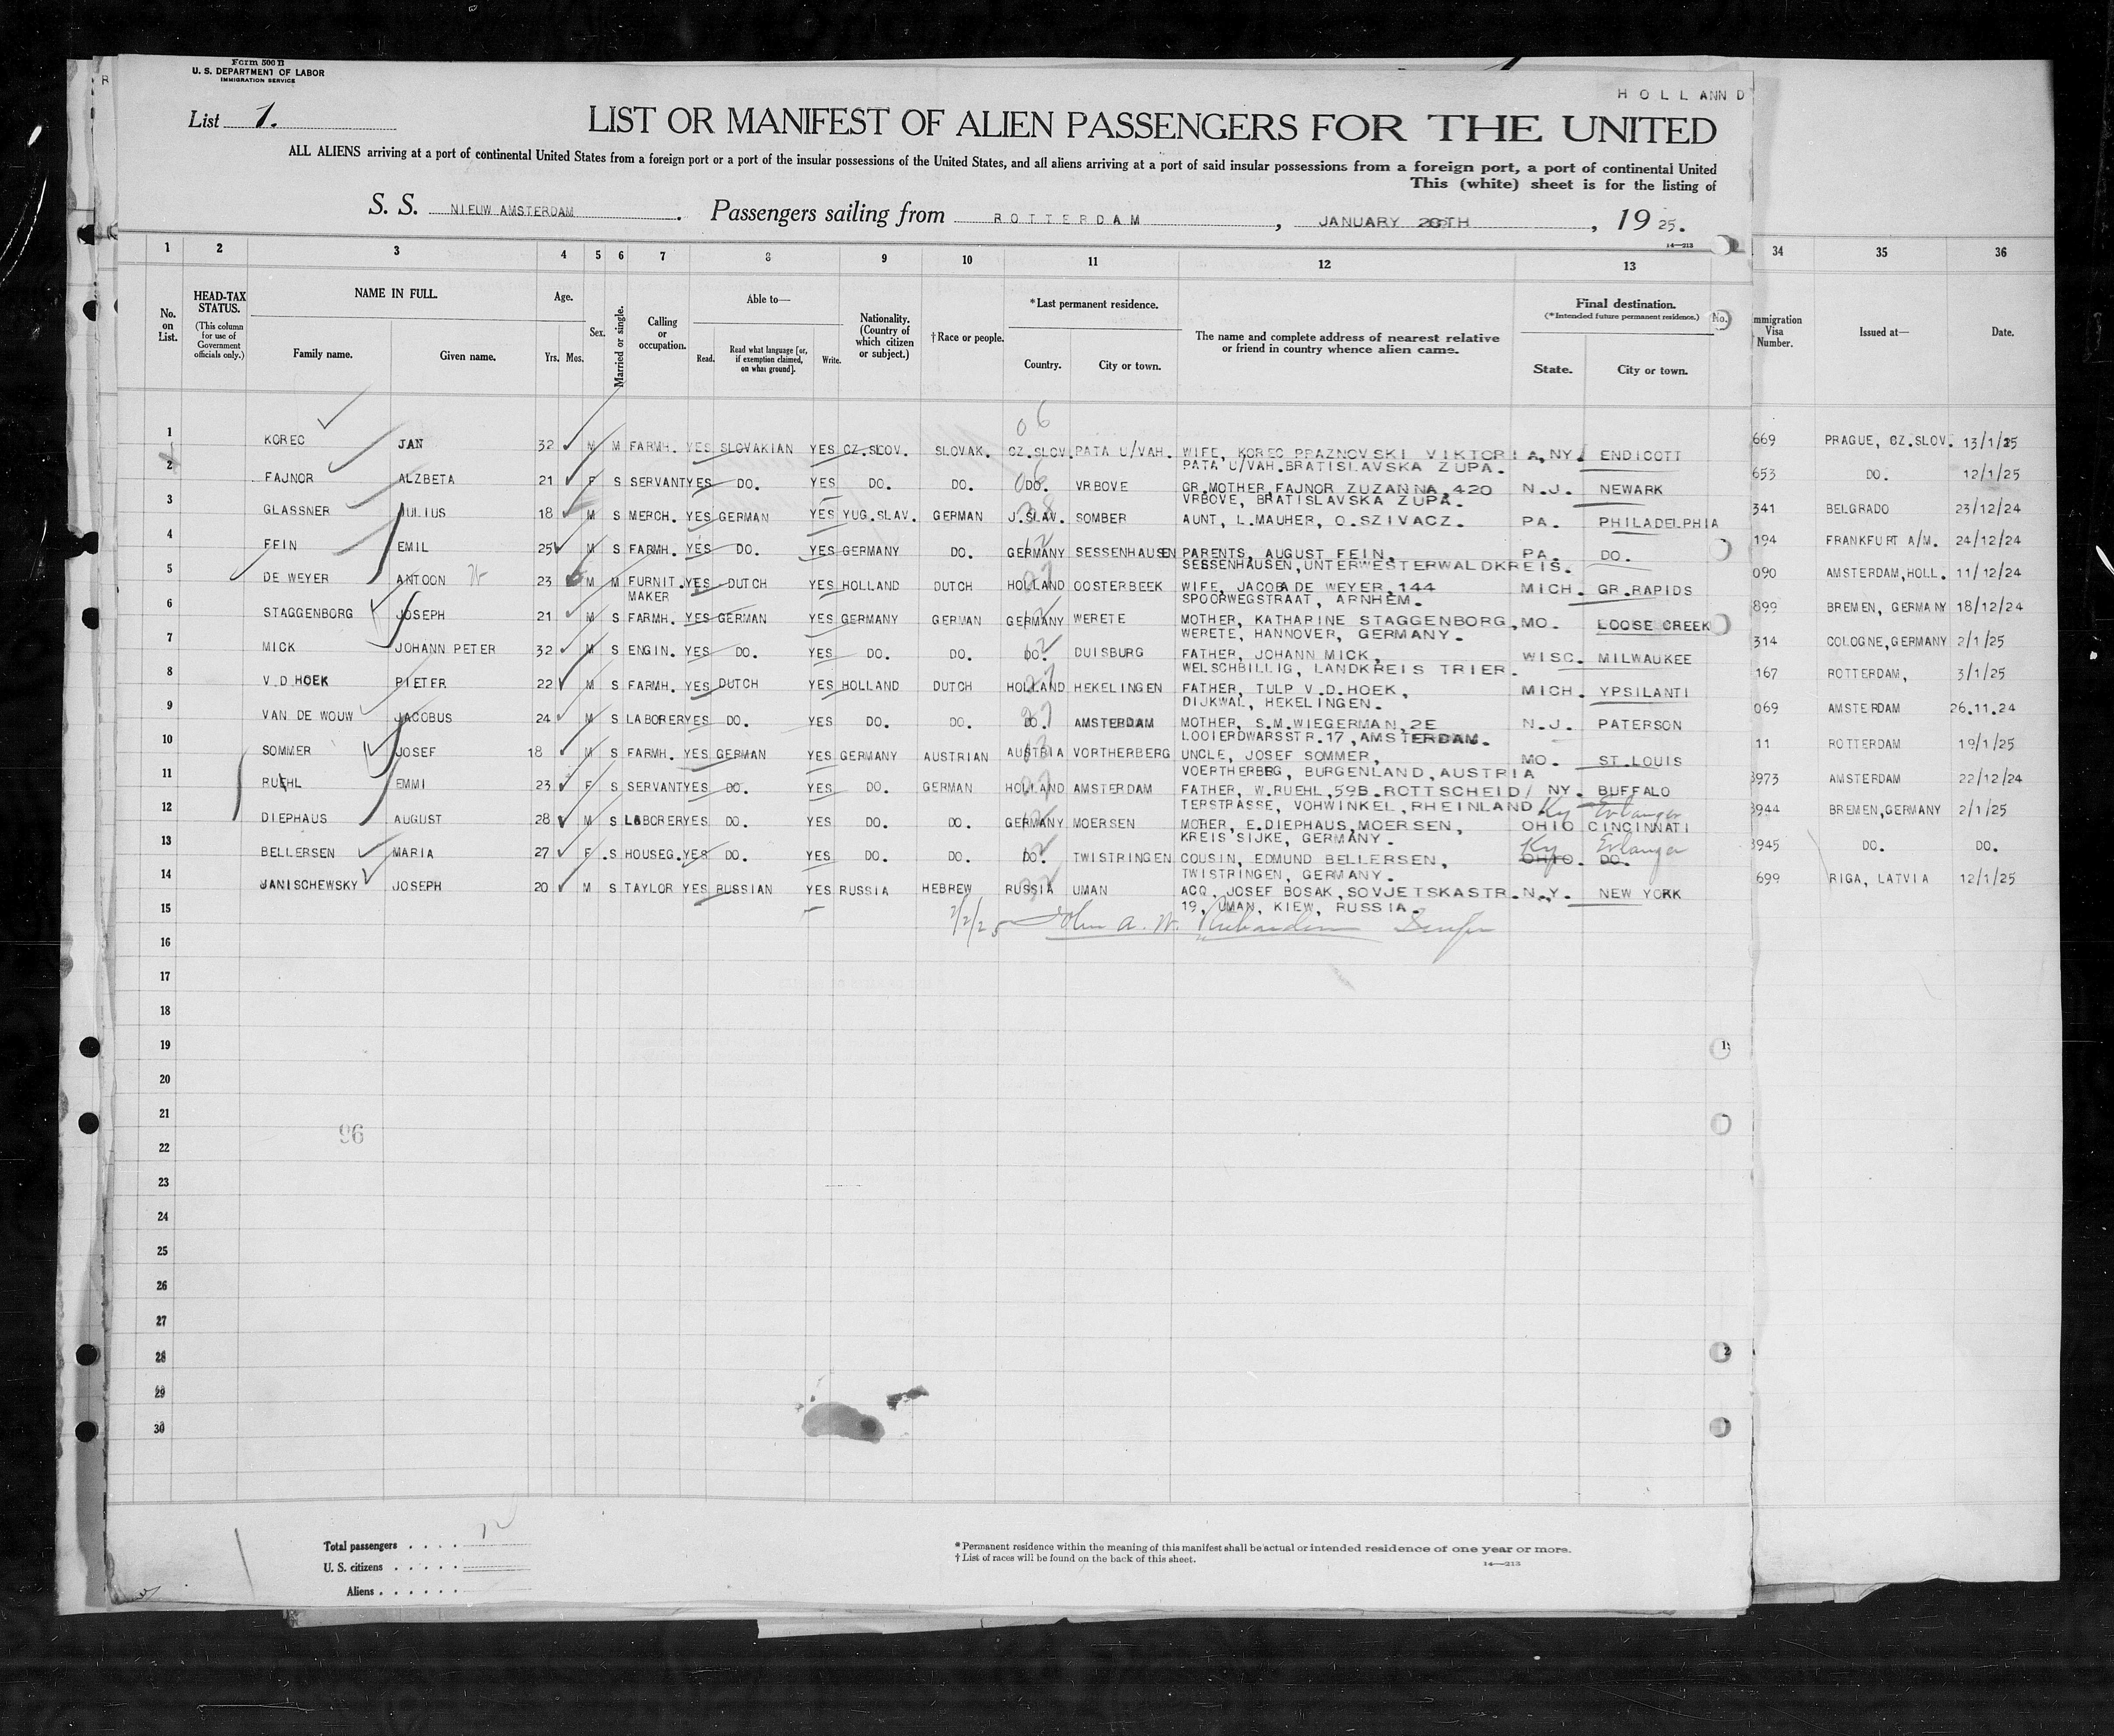 Form 500 B
U. S. DEPARTMENT OF LABOR
IMMIGRATION SERVICE
R
H O L L A N D
List 1.
LIST OR MANIFEST OF ALIEN PASSENGERS FOR THE UNITED
ALL ALIENS arriving at a port of continental United States from a foreign port or a port of the insular possessions of the United States, and all aliens arriving at a port of said insular possessions from a foreign port, a port of continental United
This (white) sheet is for the listing of
S. S. NIEUW AMSTERDAM. Passengers sailing from ROTTERDAM, JANUARY 20TH, 1925.
14—213
1 2 3 4 5 6 7 8 9 10 11 12 13 34 35 36
No. on List. HEAD-TAX STATUS. (This column for use of Government officials only.) NAME IN FULL. Family name. Given name. Age. Yrs. Mos. Sex. Married or single. Calling or occupation. Able to— Read. Read what language [or, if exemption claimed, on what ground]. Write. Nationality. (Country of which citizen or subject.) †Race or people. *Last permanent residence. Country. City or town. The name and complete address of nearest relative or friend in country whence alien came. Final destination. (*Intended future permanent residence.) State. City or town. No. mmigration Visa Number. Issued at— Date.
1 KOREC JAN 32 M M FARMH. YES SLOVAKIAN YES CZ.SLOV. SLOVAK. 06 CZ.SLOV. PATA U/VAH. WIFE, KOREC PRAZNOVSKI VIKTORIA, NY. ENDICOTT 669 PRAGUE, CZ.SLOV. 13/1/25
PATA U/VAH.BRATISLAVSKA ZUPA.
2 FAJNOR ALZBETA 21 F S SERVANT YES DO. YES DO. DO. DO. VRBOVE GR.MOTHER, FAJNOR ZUZANNA, 420 N.J. NEWARK 653 DO. 12/1/25
VRBOVE, BRATISLAVSKA ZUPA.
3 GLASSNER JULIUS 18 M S MERCH. YES GERMAN YES YUG.SLAV. GERMAN J.SLAV. SOMBER AUNT, L.MAUHER, O.SZIVACZ. PA. PHILADELPHIA 341 BELGRADO 23/12/24
4 FEIN EMIL 25 M S FARMH. YES DO. YES GERMANY DO. GERMANY SESSENHAUSEN PARENTS, AUGUST FEIN, PA. DO. 194 FRANKFURT A/M. 24/12/24
SESSENHAUSEN, UNTERWESTERWALDKREIS.
5 DE WEYER ANTOON 23 M M FURNIT. MAKER YES DUTCH YES HOLLAND DUTCH HOLLAND OOSTERBEEK WIFE, JACOBA DE WEYER, 144 MICH. GR.RAPIDS 090 AMSTERDAM,HOLL. 11/12/24
SPOORWEGSTRAAT, ARNHEM.
6 STAGGENBORG JOSEPH 21 M S FARMH. YES GERMAN YES GERMANY GERMAN GERMANY WERETE MOTHER, KATHARINE STAGGENBORG, MO. LOOSE CREEK 899 BREMEN, GERMANY 18/12/24
WERETE, HANNOVER, GERMANY.
7 MICK JOHANN PETER 32 M S ENGIN. YES DO. YES DO. DO. DO. DUISBURG FATHER, JOHANN MICK, WISC. MILWAUKEE 314 COLOGNE,GERMANY 2/1/25
WELSCHBILLIG, LANDKREIS TRIER.
8 V.D.HOEK PIETER 22 M S FARMH. YES DUTCH YES HOLLAND DUTCH HOLLAND HEKELINGEN FATHER, TULP V.D.HOEK, MICH. YPSILANTI 167 ROTTERDAM, 3/1/25
DIJKWAL, HEKELINGEN.
9 VAN DE WOUW JACOBUS 24 M S LABORER YES DO. YES DO. DO. DO. AMSTERDAM MOTHER, S.M.WIEGERMAN, 2E N.J. PATERSON 069 AMSTERDAM 26.11.24
LOOIERDWARSSTR.17, AMSTERDAM.
10 SOMMER JOSEF 18 M S FARMH. YES GERMAN YES GERMANY AUSTRIAN AUSTRIA VORTHERBERG UNCLE, JOSEF SOMMER, MO. ST.LOUIS 11 ROTTERDAM 19/1/25
VOERTHERBERG, BURGENLAND, AUSTRIA
11 RUEHL EMMI 23 F S SERVANT YES DO. YES DO. GERMAN HOLLAND AMSTERDAM FATHER, W.RUEHL, 59B.ROTTSCHEID/ NY. BUFFALO 3973 AMSTERDAM 22/12/24
TERSTRASSE, VOHWINKEL, RHEINLAND Ky Erlanger
12 DIEPHAUS AUGUST 28 M S LABORER YES DO. YES DO. DO. GERMANY MOERSEN MOTHER, E.DIEPHAUS, MOERSEN, OHIO CINCINNATI 3944 BREMEN,GERMANY 2/1/25
KREIS SIJKE, GERMANY. Ky Erlanger
13 BELLERSEN MARIA 27 F S HOUSEG. YES DO. YES DO. DO. DO. TWISTRINGEN COUSIN, EDMUND BELLERSEN, OHIO. DO. 3945 DO. DO.
TWISTRINGEN, GERMANY.
14 JANISCHEWSKY JOSEPH 20 M S TAYLOR YES RUSSIAN YES RUSSIA HEBREW RUSSIA UMAN ACQ. JOSEF BOSAK, SOVJETSKASTR. N.Y. NEW YORK 699 RIGA, LATVIA 12/1/25
19, UMAN, KIEW, RUSSIA.
15
2/2/25 John A. W. Richardson
16
17
18
19
20
21
96
22
23
24
25
26
27
28
29
30
Total passengers
U. S. citizens
Aliens
*Permanent residence within the meaning of this manifest shall be actual or intended residence of one year or more.
†List of races will be found on the back of this sheet.
14—213